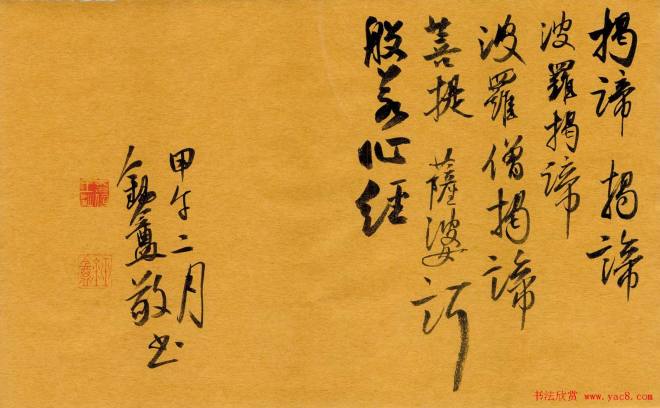 揭諦 揭諦
波羅揭諦
波羅僧揭諦
菩提 薩婆訶
般若心經
甲午二月
敬书
书法欣赏 www.yac8.com